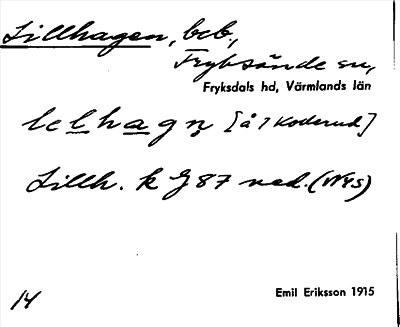 Lillhagen, bcb.,
Fryksände sn,
Fryksdals hd, Värmlands län
lelhagn [å 7 Koderud]
Lillh. k G 87 ned. (Wys)
14
Emil Eriksson 1915